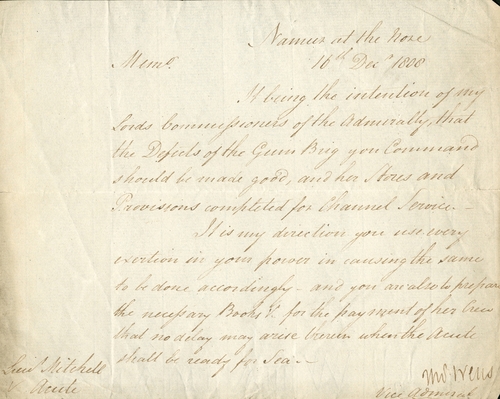 Namur at the Nore
16th Decr 1808
Memo.
It being the intention of my
Lords Commissioners of the Admiralty, that
the Defects of the Gun Brig you Command
should be made good, and her Stores and
Provisions completed for Channel Service –
It is my direction you use every
exertion in your power in causing the same
to be done accordingly – and you are also to prepare
the necessary Books &c for the payment of her Crew
that no delay may arise therein when the Acute
shall be ready for Sea. –
Lieut Mitchell
Acute
Thos Wells
Vice Admiral